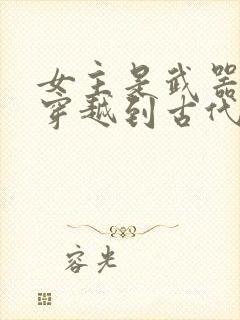 女主是武器
穿越到古代
容光